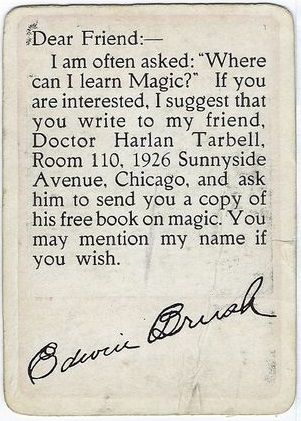 Dear Friend:—
I am often asked: "Where
can I learn Magic?" If you
are interested, I suggest that
you write to my friend,
Doctor Harlan Tarbell,
Room 110, 1926 Sunnyside
Avenue, Chicago, and ask
him to send you a copy of
his free book on magic. You
may mention my name if
you wish.
Edwin Brush